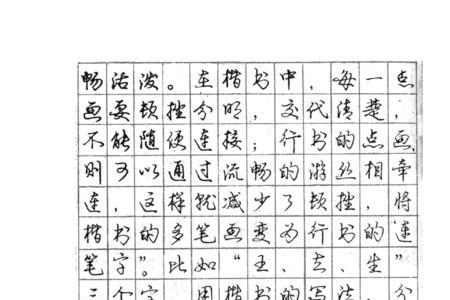 畅活泼。在楷书中，每一点
画要顿挫分明，交代清楚，
不能随便连接；行书的点画，
则可以通过流畅的游丝相牵
连，这样就减少了顿挫，将
楷书的多笔画变为行书的“连
笔字”。比如“王、去、生”
三个字，用楷书的写法，分